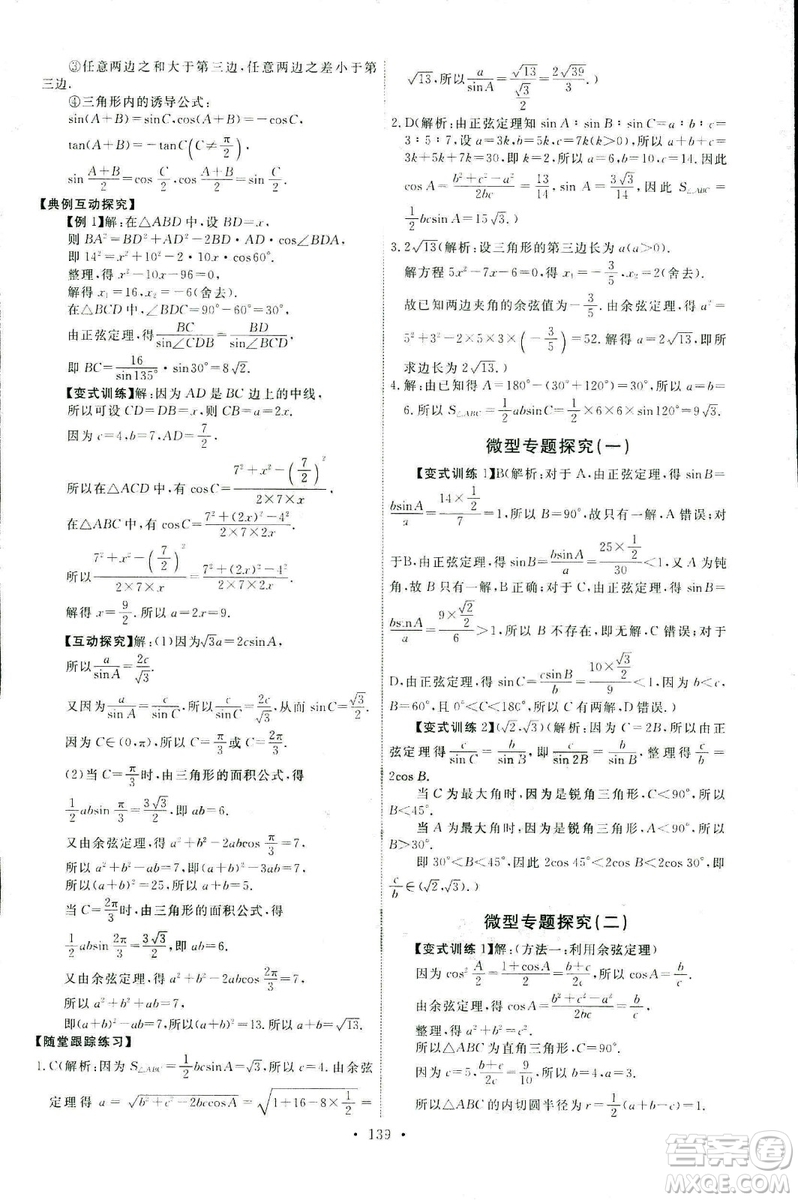 ③任意两边之和大于第三边,任意两边之差小于第
三边.
④三角形内的诱导公式:
sin(A+B)=sinC,cos(A+B)=-cosC,
tan(A+B)=-tanC(C≠π/2),
sin (A+B)/2=cos C/2,cos (A+B)/2=sin C/2.
【典例互动探究】
【例1】解:在△ABD中,设BD=x,
则BA²=BD²+AD²-2BD·AD·cos∠BDA,
即14²=x²+10²-2·10x·cos60°,
整理,得x²-10x-96=0,
解得x₁=16,x₂=-6(舍去).
在△BCD中,∠BDC=90°-60°=30°,
由正弦定理,得BC/sin∠CDB=BD/sin∠BCD,
即BC=16/sin135°·sin30°=8√2.
【变式训练】解:因为AD是BC边上的中线,
所以可设CD=DB=x,则CB=a=2x.
因为c=4,b=7,AD=7/2,
所以在△ACD中,有cosC=(7²+x²-(7/2)²)/(2×7×x),
在△ABC中,有cosC=(7²+(2x)²-4²)/(2×7×2x).
所以(7²+x²-(7/2)²)/(2×7×x)=(7²+(2x)²-4²)/(2×7×2x).
解得x=9/2.所以a=2x=9.
【互动探究】解:(1)因为√3a=2csinA,
所以a/sinA=2c/√3.
又因为a/sinA=c/sinC,所以2c/√3=c/sinC,从而sinC=√3/2.
因为C∈(0,π),所以C=π/3或C=2π/3.
(2)当C=π/3时,由三角形的面积公式,得
1/2absin π/3=3√3/2,即ab=6.
又由余弦定理,得a²+b²-2abcos π/3=7,
所以a²+b²-ab=7,即(a+b)²-3ab=7,
所以(a+b)²=25,所以a+b=5.
当C=2π/3时,由三角形的面积公式,得
1/2absin 2π/3=3√3/2,即ab=6,
又由余弦定理,得a²+b²-2abcos 2π/3=7,
所以a²+b²+ab=7,
即(a+b)²-ab=7,所以(a+b)²=13,所以a+b=√13.
【随堂跟踪练习】
1.C(解析:因为S△ABC=1/2bcsinA=√3,所以c=4.由余弦
定理得a=√(b²+c²-2bccosA)=√(1+16-8×1/2)=
√13,所以a/sinA=√13/(√3/2)=2√39/3.)
2.D(解析:由正弦定理知sinA∶sinB∶sinC=a∶b∶c=
3∶5∶7,设a=3k,b=5k,c=7k(k>0),所以a+b+c=
3k+5k+7k=30,解得k=2,所以a=6,b=10,c=14.因此
cosA=(b²+c²-a²)/2bc=13/14,sinA=3√3/14.因此S△ABC=
1/2bcsinA=15√3.)
3.2√13(解析:设三角形的第三边长为a(a>0).
解方程5x²-7x-6=0,得x₁=-3/5,x₂=2(舍去).
故已知两边夹角的余弦值为-3/5,由余弦定理,得a²=
5²+3²-2×5×3×(-3/5)=52.解得a=2√13,所以所
求边长为2√13.)
4.解:由已知得A=180°-(30°+120°)=30°,所以b=a=
6.所以S△ABC=1/2absinC=1/2×6×6×sin120°=9√3.
微型专题探究(一)
【变式训练1】B(解析:对于A,由正弦定理,得sinB=
bsinA/a=(14×1/2)/7=1,所以B=90°,故只有一解,A错误;对
于B,由正弦定理,得sinB=bsinA/a=(25×1/2)/30<1,又A为钝
角,故B只有一解,B正确;对于C,由正弦定理,得sinB=
bsinA/a=(9×√2/2)/6>1,所以B不存在,即无解,C错误;对于
D,由正弦定理,得sinC=csinB/b=(10×√2/2)/9<1,因为b<c,
B=60°,且0°<C<180°,所以C有两解,D错误.)
【变式训练2】(√2,√3)(解析:因为C=2B,所以由正
弦定理c/sinC=b/sinB,即c/sin2B=b/sinB,整理得c/b=
2cosB.
当C为最大角时,因为是锐角三角形,C<90°,所
以B<45°.
当A为最大角时,因为是锐角三角形,A<90°,所
以B>30°.
即30°<B<45°,所以2cos45°<c/b<2cos30°,所以
c/b∈(√2,√3).)
微型专题探究(二)
【变式训练1】解:(方法一:利用余弦定理)
因为cos² A/2=(1+cosA)/2=(b+c)/2c,所以cosA=b/c.
由余弦定理,得(b²+c²-a²)/2bc=b/c,
整理,得a²+b²=c².
所以△ABC为直角三角形,C=90°.
由c=5,(b+c)/2c=9/10,得b=4,所以a=3.
所以△ABC的内切圆半径为r=1/2(a+b-c)=1.
139
答案圈
MXQE.COM